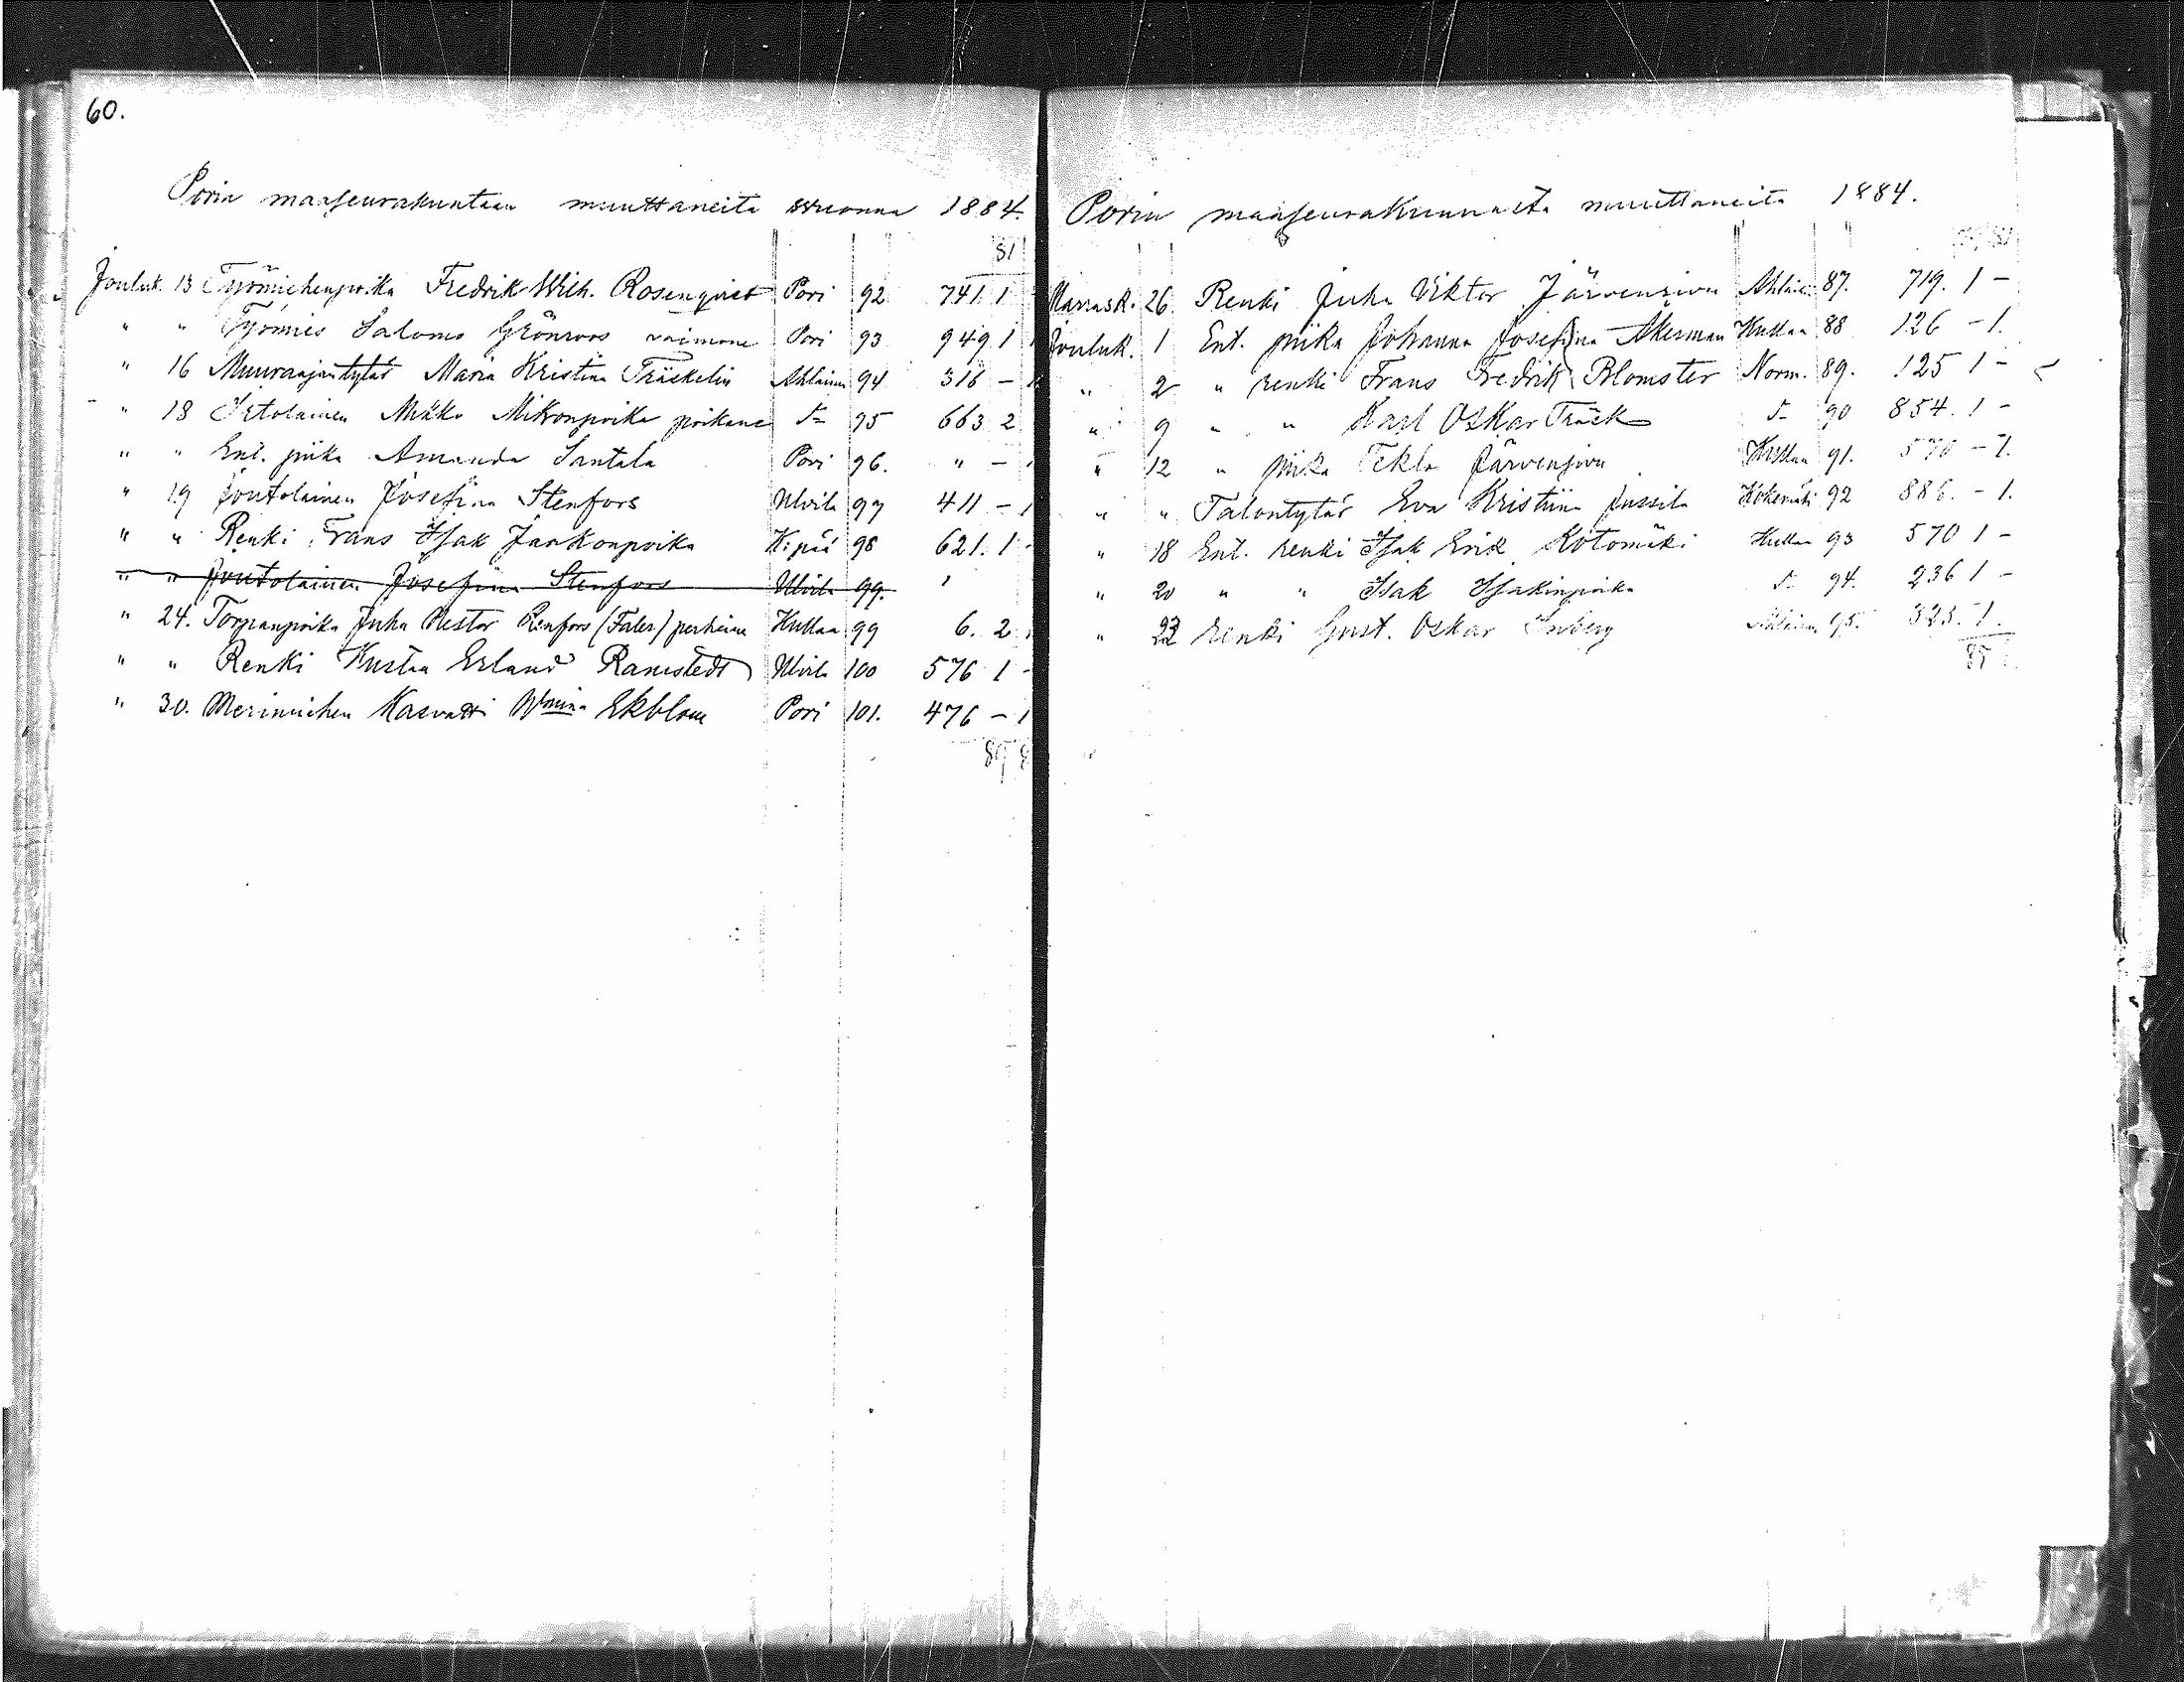 60.
Porin maaseurakuntaan muuttaneita vuonna 1884.
81
Jouluk. 13 Työmiehenpoika Fredrik Wilh. Rosenqvist Pori 92 741. 1 -
" " Työmies Salomo Grönroos vaimone Pori 93 949 1 1
" 16 Muuraajantytär Maria Kristina Träskelin Ahlainen 94 316 - 1
" 18 Itsolainen Mikko Mikonpoika poikane d:o 95 663 2
" " Ent. piika Amanda Santala Pori 96. " -
" 19 Joutolainen Josefina Stenfors Ulvila 97 411 - 1
" " Renki Frans Isak Jaakonpoika K:pää 98 621. 1 -
" " Joutolainen Josefina Stenfors Ulvila 99.
" 24. Torpanpoika Juha Nestor Renfors (Faler) perheine Kullaa 99 6. 2
" " Renki Kustaa Erland Ramstedt Ulvila 100 576 1 -
" 30. Merimiehen Kasvatti Wmina Ekblom Pori 101. 476 - 1
89
Porin maaseurakunnasta muuttaneita 1884.
Marrask. 26 Renki Juha Viktor Järvensivu Ahlainen 87. 719. 1 -
Jouluk. 1 Ent. piika Johanna Josefina Akerman Kullaa 88 126 - 1.
" 2 " renki Frans Fredrik Blomster Norm. 89. 125 1 -
" 9 " " Karl Oskar Träsk d:o 90 854. 1 -
" 12 " piika Tekla Järvensivu Kullaa 91. 570 - 1.
" " Talontytär Eva Kristiina Jussila Kokemäki 92 886. - 1.
" 18 Ent. renki Isak Erik Kotomäki Kullaa 93 570 1 -
" 20 " " Isak Isakinpoika d:o 94. 236 1 -
" 23 renki Gust. Oskar Inberg Ahlainen 95. 323. 1.
85